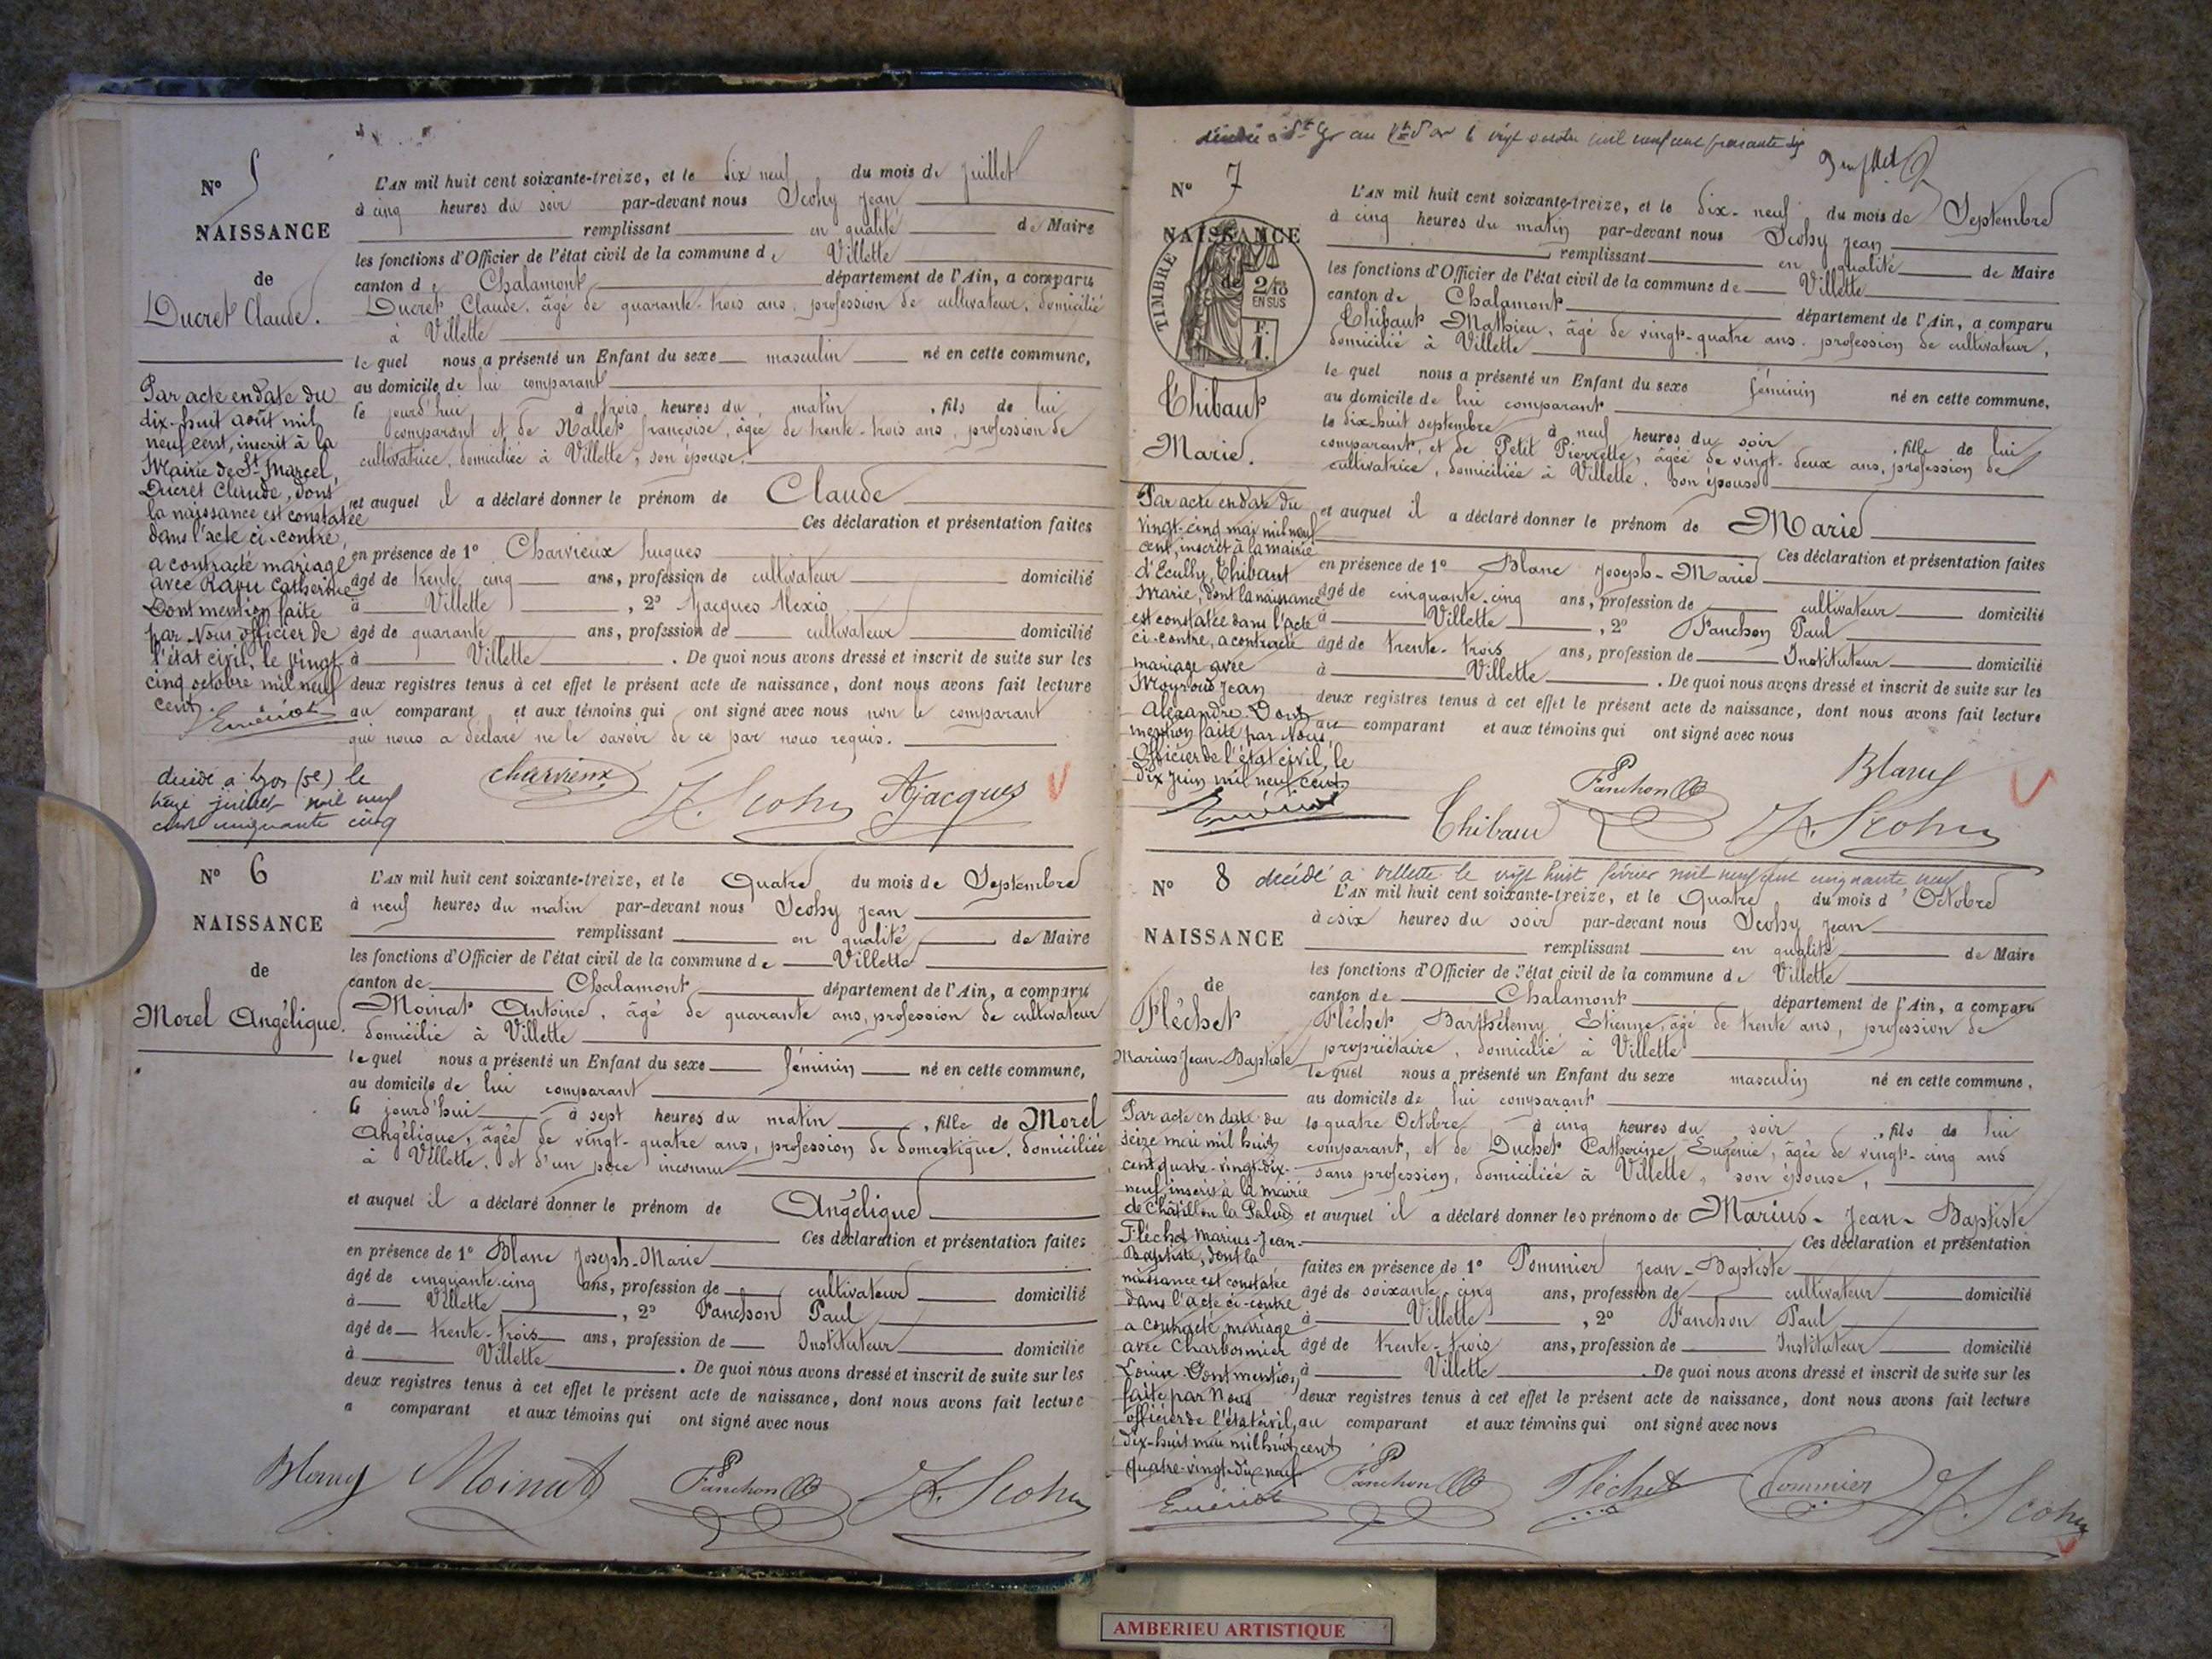 N° 5
NAISSANCE
de
Ducret Claude.
Par acte en date du
dix-huit août mil
neuf cent, inscrit à la
Mairie de St Marcel,
Ducret Claude, dont
la naissance est constatée
dans l'acte ci-contre,
a contracté mariage
avec Ravu Catherine
Dont mention faite
par Nous officier de
l'état civil, le vingt
cinq octobre mil neuf
cent.
décédé à Lyon (5e) le
juillet mil neuf
cent cinquante cinq
L'AN mil huit cent soixante-treize, et le dix neuf du mois de Juillet
à cinq heures du soir par-devant nous Scohy Jean
remplissant en qualité de Maire
les fonctions d'Officier de l'état civil de la commune de Villette
canton de Chalamont département de l'Ain, a comparu
Ducret Claude, âgé de quarante-trois ans, profession de cultivateur, domicilié
à Villette
lequel nous a présenté un Enfant du sexe masculin né en cette commune,
au domicile de lui comparant
le jourd'hui à trois heures du matin, fils de lui
comparant et de Nallet françoise, âgée de trente-trois ans, profession de
cultivatrice, domiciliée à Villette, son épouse,
et auquel il a déclaré donner le prénom de Claude
Ces déclaration et présentation faites
en présence de 1° Charvieux hugues
âgé de trente cinq ans, profession de cultivateur domicilié
à Villette, 2° Ajacques Alexis
âgé de quarante ans, profession de cultivateur domicilié
à Villette. De quoi nous avons dressé et inscrit de suite sur les
deux registres tenus à cet effet le présent acte de naissance, dont nous avons fait lecture
au comparant et aux témoins qui ont signé avec nous non le comparant
qui nous a déclaré ne le savoir de ce par nous requis.
Charvieux J. Scohy Ajacques
N° 6
NAISSANCE
de
Morel Angélique.
L'AN mil huit cent soixante-treize, et le Quatre du mois de Septembre
à neuf heures du matin par-devant nous Scohy Jean
remplissant en qualité de Maire
les fonctions d'Officier de l'état civil de la commune de Villette
canton de Chalamont département de l'Ain, a comparu
Moinat Antoine, âgé de quarante ans, profession de cultivateur
domicilié à Villette
lequel nous a présenté un Enfant du sexe féminin né en cette commune,
au domicile de lui comparant
le jourd'hui à sept heures du matin, fille de Morel
Angélique, âgée de vingt-quatre ans, profession de domestique, domiciliée
à Villette, et d'un père inconnu
et auquel il a déclaré donner le prénom de Angélique
Ces déclaration et présentation faites
en présence de 1° Blanc Joseph-Marie
âgé de cinquante-cinq ans, profession de cultivateur domicilié
à Villette, 2° Fanchon Paul
âgé de trente-trois ans, profession de Instituteur domicilié
à Villette. De quoi nous avons dressé et inscrit de suite sur les
deux registres tenus à cet effet le présent acte de naissance, dont nous avons fait lecture
a comparant et aux témoins qui ont signé avec nous
Blanc Moinat Fanchon J. Scohy
mil neuf cent soixante six
N° 7
NAISSANCE
de
TIMBRE
2/10
EN SUS
F.
1.
Thibaut
Marie.
Par acte en date du
vingt-cinq mai mil neuf
cent, inscrit à la mairie
d'Ecully, Thibaut
Marie, dont la naissance
est constatée dans l'acte
ci-contre, a contracté
mariage avec
Moyroud Jean
Alexandre. Dont
mention faite par Nous
Officier de l'état civil, le
dix Juin mil neuf cent
L'AN mil huit cent soixante-treize, et le dix-neuf du mois de Septembre
à cinq heures du matin par-devant nous Scohy Jean
remplissant en qualité de Maire
les fonctions d'Officier de l'état civil de la commune de Villette
canton de Chalamont département de l'Ain, a comparu
Thibaut Mathieu, âgé de vingt-quatre ans, profession de cultivateur,
domicilié à Villette
lequel nous a présenté un Enfant du sexe féminin né en cette commune,
au domicile de lui comparant
le dix-huit septembre à neuf heures du soir, fille de lui
comparant, et de Petit Pierrette, âgée de vingt-deux ans, profession de
cultivatrice, domiciliée à Villette, son épouse
et auquel il a déclaré donner le prénom de Marie
Ces déclaration et présentation faites
en présence de 1° Blanc Joseph-Marie
âgé de cinquante-cinq ans, profession de cultivateur domicilié
à Villette, 2° Fanchon Paul
âgé de trente-trois ans, profession de Instituteur domicilié
à Villette. De quoi nous avons dressé et inscrit de suite sur les
deux registres tenus à cet effet le présent acte de naissance, dont nous avons fait lecture
au comparant et aux témoins qui ont signé avec nous
Fanchon Blanc
Thibaud J. Scohy
N° 8 décédé à Villette le vingt huit février mil neuf cent cinquante neuf
NAISSANCE
de
Fléchet
Marius Jean-Baptiste
Par acte en date du
seize mai mil huit
cent quatre-vingt-dix-
neuf, inscrit à la mairie
de Châtillon la Palud
Fléchet Marius-Jean-
Baptiste, dont la
naissance est constatée
dans l'acte ci-contre
a contracté mariage
avec Charbonnier
Louise. Dont mention
faite par Nous
officier de l'état civil,
dix-huit mai mil huit cent
quatre-vingt-dix neuf
L'AN mil huit cent soixante-treize, et le Quatre du mois d'Octobre
à six heures du soir par-devant nous Scohy Jean
remplissant en qualité de Maire
les fonctions d'Officier de l'état civil de la commune de Villette
canton de Chalamont département de l'Ain, a comparu
Fléchet Barthélemy Etienne, âgé de trente ans, profession de
propriétaire, domicilié à Villette
lequel nous a présenté un Enfant du sexe masculin né en cette commune,
au domicile de lui comparant
le quatre Octobre à cinq heures du soir, fils de lui
comparant, et de Duchet Catherine Eugénie, âgée de vingt-cinq ans
sans profession, domiciliée à Villette, son épouse,
et auquel il a déclaré donner les prénoms de Marius-Jean-Baptiste
Ces déclaration et présentation
faites en présence de 1° Pommier Jean-Baptiste
âgé de soixante-cinq ans, profession de cultivateur domicilié
à Villette, 2° Fanchon Paul
âgé de trente-trois ans, profession de Instituteur domicilié
à Villette. De quoi nous avons dressé et inscrit de suite sur les
deux registres tenus à cet effet le présent acte de naissance, dont nous avons fait lecture
au comparant et aux témoins qui ont signé avec nous
Fanchon Fléchet Pommier J. Scohy
AMBERIEU ARTISTIQUE